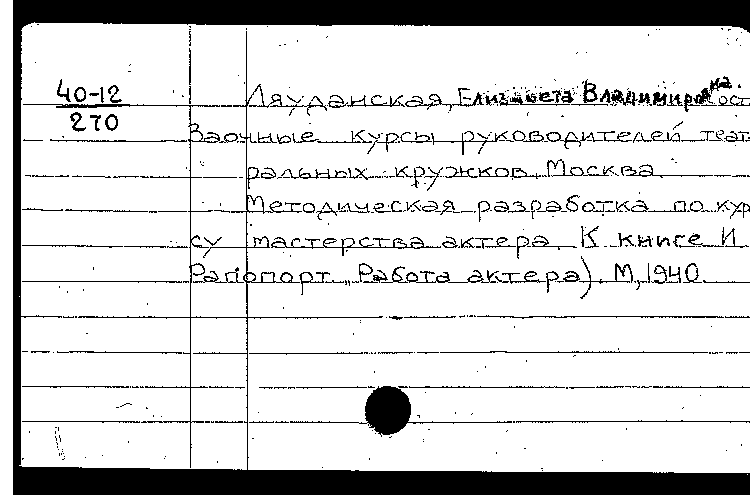 40-12
270
Ляуданская, Елизавета Владимировна. сост
Заочные курсы руководителей теат
ральных кружков, Москва.
Методическая разработка по кур
су мастерства актера. К книге И
Рапопорт „Работа актера). М, 1940.